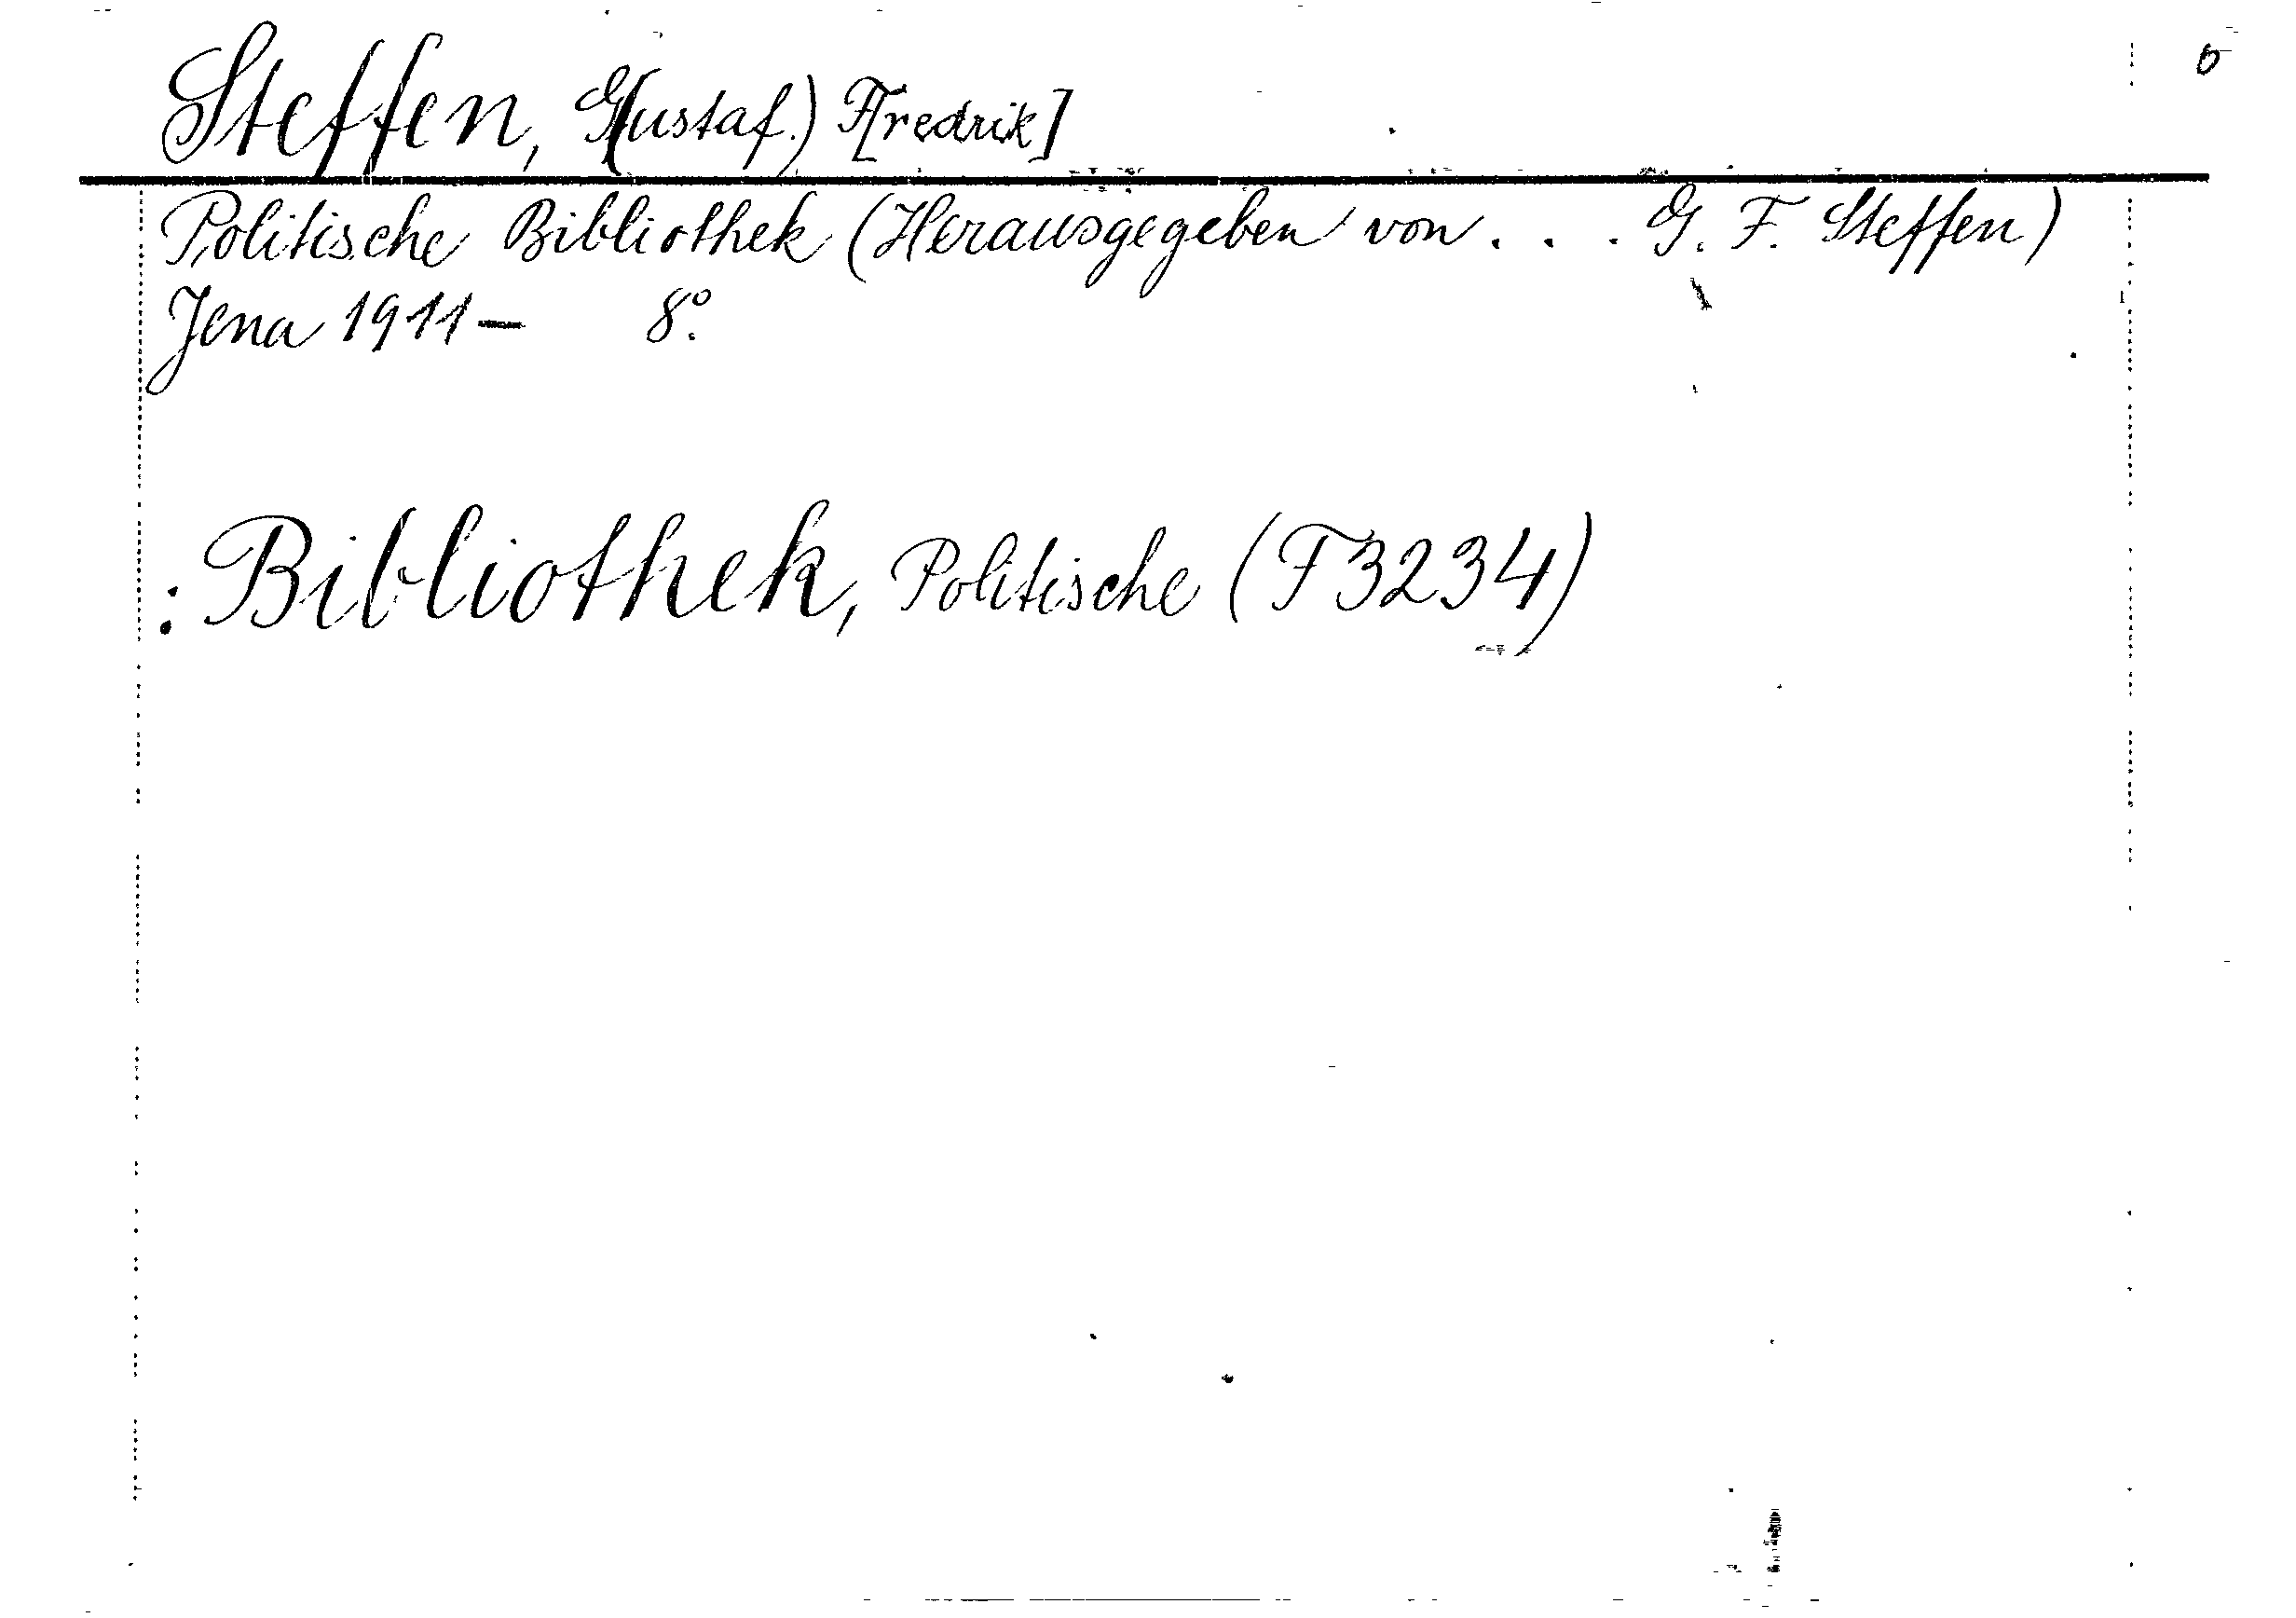 Steffen, G(ustaf.) F[redrik]
Politische Bibliothek (Herausgegeben von . . . G. F. Steffen)
Jena 1911– 8º.
: Bibliothek, Politische (F3234)